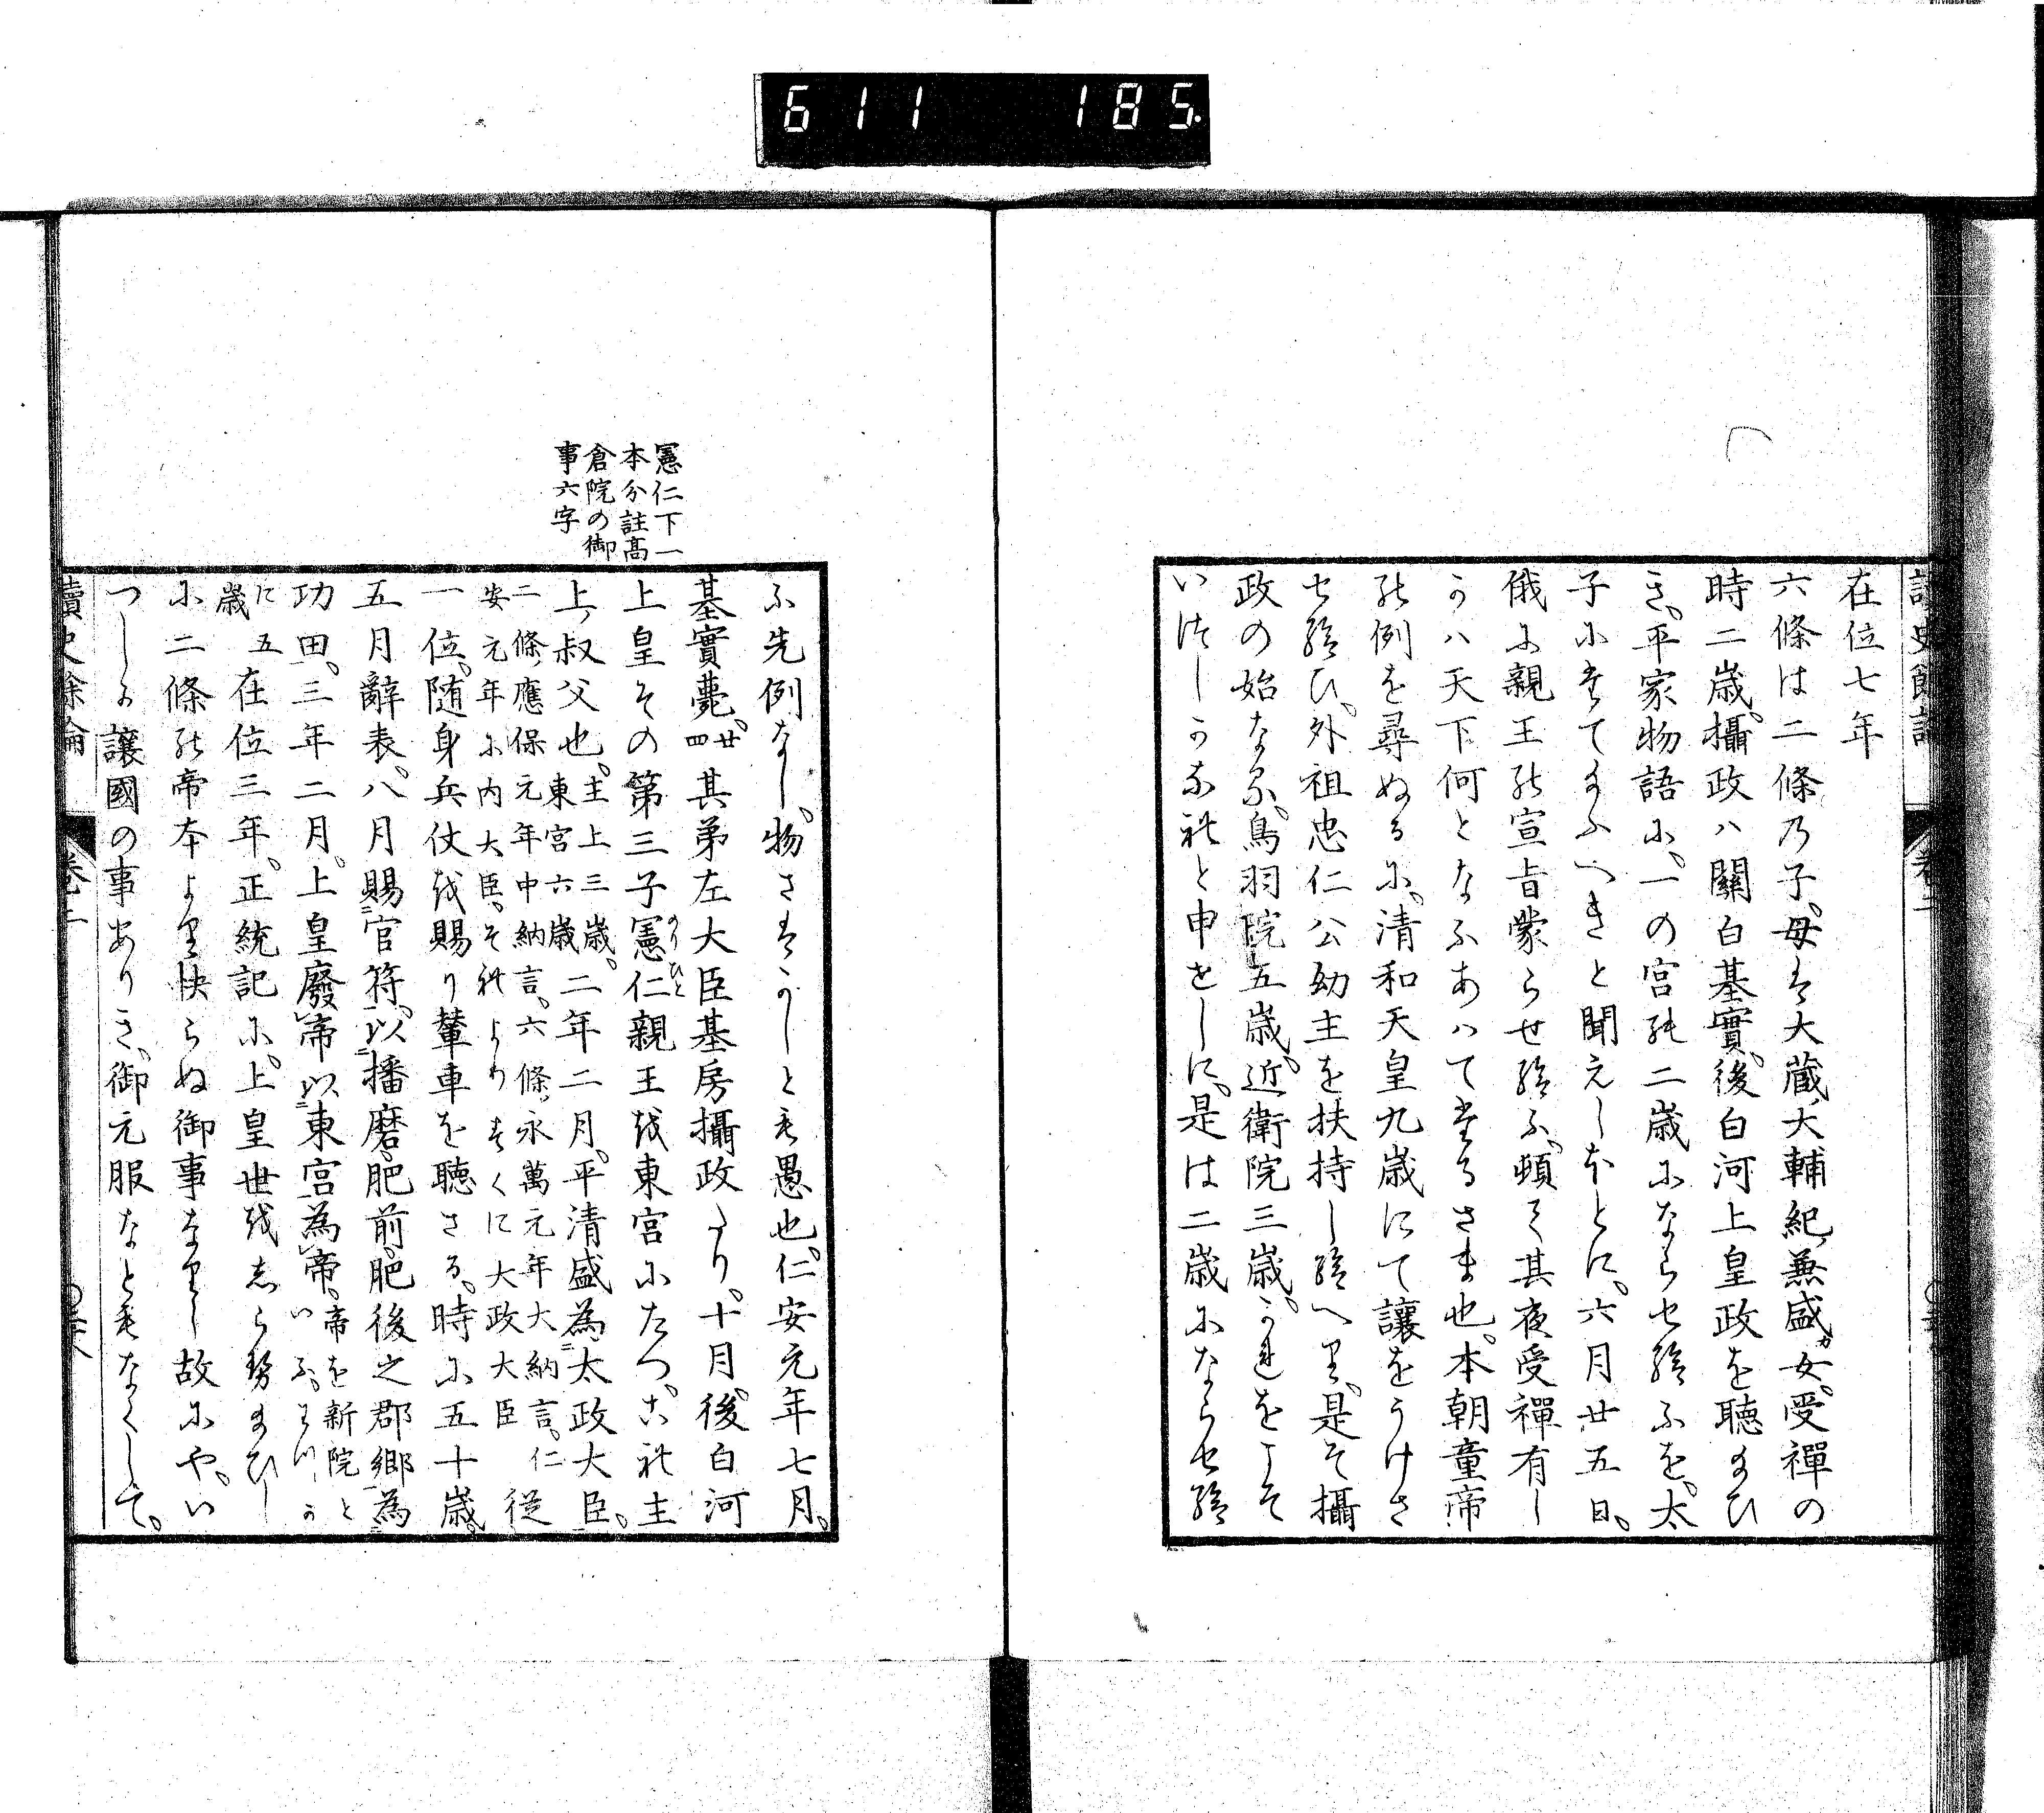 611 185.
在位七年
六條は二條乃子、母は大藏大輔紀兼盛カ女、受禪の
時二歳、攝政ハ關白基實、後白河上皇政を聴給ひ
き、平家物語に、一の宮の二歳にならせ給ふを、太
子にたて給ふへきと聞えしほとに、六月廿五日、
俄に親王の宣旨蒙らせ給ふ、頓て其夜受禪有し
かハ天下何となふあハてたるさま也、本朝童帝
の例を尋ぬるに、清和天皇九歳にて讓をうけさ
せ給ひ、外祖忠仁公幼主を扶持し給へり、是そ攝
政の始なる、鳥羽院五歳、近衛院三歳、かれをこそ
いつしかなれと申せしに、是は二歳にならせ給
憲仁下一
本分註髙
倉院の御
事六字
ふ先例なし、物さはかしとも愚也、仁安元年七月、
基實薨、廿四其弟左大臣基房攝政たり、十月、後白河
上皇その第三子憲仁のりひと親王を東宮にたつ、これ主
上叔父也、主上三歳、東宮六歳二年二月、平清盛為太政大臣、
二條應保元年中納言、六條永萬元年大納言、仁
安元年に内大臣、それよりすくに大政大臣從
一位、随身兵仗を賜り輦車を聴さる、時に五十歳、
五月辭表、八月賜官符、以播磨肥前肥後之郡郷為
功田、三年二月、上皇廢帝以東宮為帝、帝を新院と
いふ、わつか
に五
歳在位三年、正統記に、上皇世をしらせ給ひし
に二條の帝本より快らぬ御事なりし故にや、い
つしか讓國の事ありき、御元服なともなくして、
讀史餘論 卷二